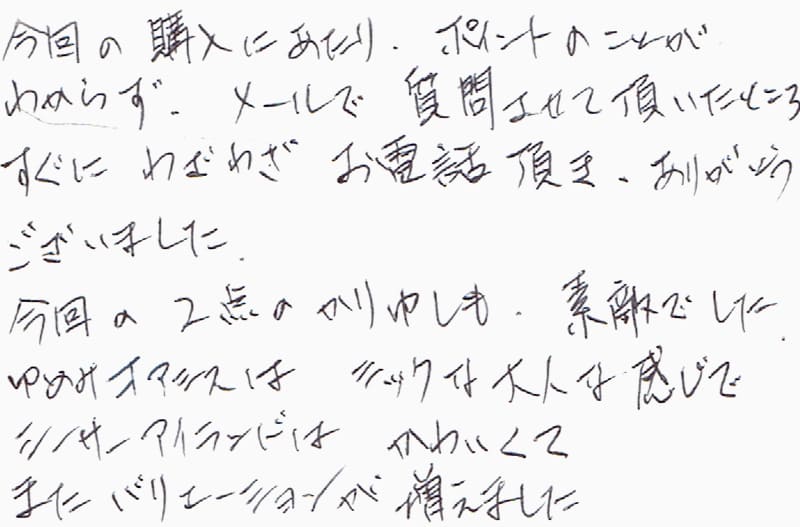 今回の購入にあたり、ポイントのことが
わからず、メールで質問させて頂いたところ
すぐにわざわざお電話頂き、ありがとう
ございました。
今回の2点のかりゆしも、素敵でした。
ゆめみオアシスはシックな大人な感じで
シーサーアイランドはかわいくて
またバリエーションが増えました